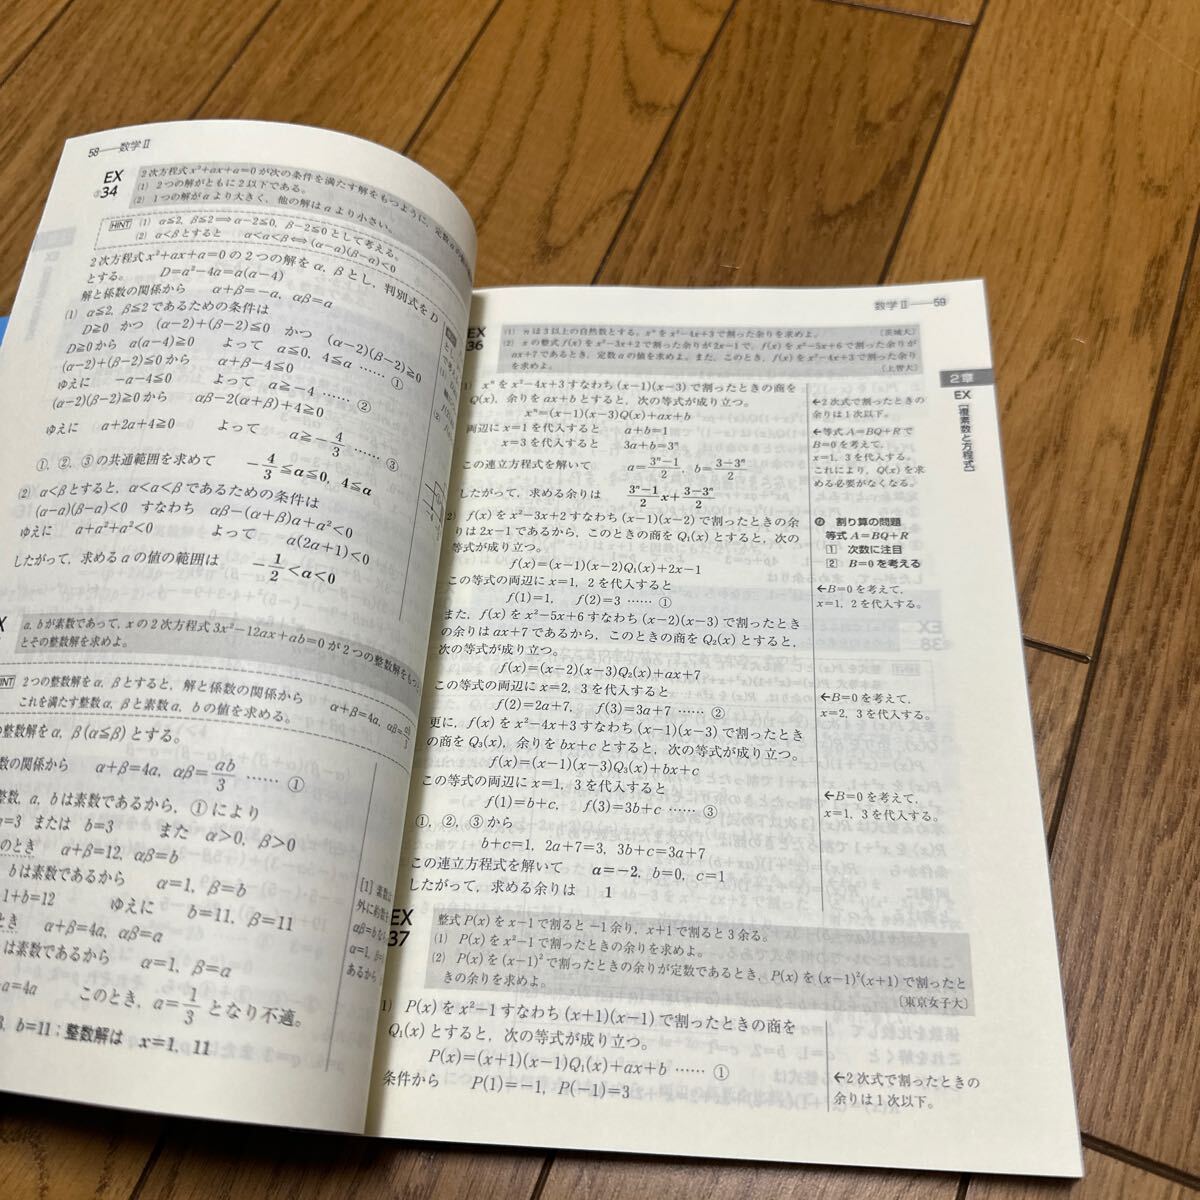 58──数学Ⅱ
EX
②34
2次方程式 x²+ax+a=0 が次の条件を満たす解をもつように,定数 a の
(1) 2つの解がともに2以下である。
(2) 1つの解が a より大きく,他の解は a より小さい。
HINT (1) α≦2, β≦2 ⟹ α−2≦0, β−2≦0 として考える。
(2) α<β とすると α<a<β ⟺ (α−a)(β−a)<0
2次方程式 x²+ax+a=0 の2つの解を α, β とし,判別式を D
とする。 D=a²−4a=a(a−4)
解と係数の関係から α+β=−a, αβ=a
(1) α≦2, β≦2 であるための条件は
D≧0 かつ (α−2)+(β−2)≦0 かつ (α−2)(β−2)≧0
D≧0 から a(a−4)≧0 よって a≦0, 4≦a …… ①
(α−2)+(β−2)≦0 から α+β−4≦0
ゆえに −a−4≦0 よって a≧−4 …… ②
(α−2)(β−2)≧0 から αβ−2(α+β)+4≧0
ゆえに a+2a+4≧0 よって a≧−4/3 …… ③
①, ②, ③ の共通範囲を求めて −4/3≦a≦0, 4≦a
(2) α<β とすると, α<a<β であるための条件は
(α−a)(β−a)<0 すなわち αβ−(α+β)a+a²<0
ゆえに a+a²+a²<0 よって a(2a+1)<0
したがって,求める a の値の範囲は −1/2<a<0
a, b が素数であって, x の2次方程式 3x²−12ax+ab=0 が2つの整数解をもつ
とその整数解を求めよ。
INT 2つの整数解を α, β とすると,解と係数の関係から α+β=4a, αβ=ab/3
これを満たす整数 α, β と素数 a, b の値を求める。
整数解を α, β (α≦β) とする。
数の関係から α+β=4a, αβ=ab/3 …… ①
整数, a, b は素数であるから, ① により
a=3 または b=3 また α>0, β>0
のとき α+β=12, αβ=b
bは素数であるから α=1, β=b
1+b=12 ゆえに b=11, β=11
とき α+β=4a, αβ=a
は素数であるから α=1, β=a
+a=4a このとき, a=1/3 となり不適。
3, b=11 ; 整数解は x=1, 11
[1] 素数
外に約数を
αβ=b な
α=1, β=
あるから
数学Ⅱ──59
2章
EX
[複素数と方程式]
EX
36
(1) n は3以上の自然数とする。xⁿ を x²−4x+3 で割った余りを求めよ。 〔茨城大〕
(2) x の整式 f(x) を x²−3x+2 で割った余りが 2x−1 で, f(x) を x²−5x+6 で割った余りが
ax+7 であるとき,定数 a の値を求めよ。また,このとき, f(x) を x²−4x+3 で割った余り
を求めよ。 〔上智大〕
1) xⁿ を x²−4x+3 すなわち (x−1)(x−3) で割ったときの商を
Q(x), 余りを ax+b とすると,次の等式が成り立つ。
xⁿ=(x−1)(x−3)Q(x)+ax+b
両辺に x=1 を代入すると a+b=1
x=3 を代入すると 3a+b=3ⁿ
この連立方程式を解いて a=(3ⁿ−1)/2, b=(3−3ⁿ)/2
したがって,求める余りは (3ⁿ−1)/2 x+(3−3ⁿ)/2
2) f(x) を x²−3x+2 すなわち (x−1)(x−2) で割ったときの余
りは 2x−1 であるから,このときの商を Q₁(x) とすると,次の
等式が成り立つ。
f(x)=(x−1)(x−2)Q₁(x)+2x−1
この等式の両辺に x=1, 2 を代入すると
f(1)=1, f(2)=3 …… ①
また, f(x) を x²−5x+6 すなわち (x−2)(x−3) で割ったとき
の余りは ax+7 であるから,このときの商を Q₂(x) とすると,
次の等式が成り立つ。
f(x)=(x−2)(x−3)Q₂(x)+ax+7
この等式の両辺に x=2, 3 を代入すると
f(2)=2a+7, f(3)=3a+7 …… ②
更に, f(x) を x²−4x+3 すなわち (x−1)(x−3) で割ったとき
の商を Q₃(x), 余りを bx+c とすると,次の等式が成り立つ。
f(x)=(x−1)(x−3)Q₃(x)+bx+c
この等式の両辺に x=1, 3 を代入すると
f(1)=b+c, f(3)=3b+c …… ③
①, ②, ③ から
b+c=1, 2a+7=3, 3b+c=3a+7
この連立方程式を解いて a=−2, b=0, c=1
したがって,求める余りは 1
←2次式で割ったときの
余りは1次以下。
←等式 A=BQ+R で
B=0 を考えて,
x=1, 3 を代入する。
これにより, Q(x) を求
める必要がなくなる。
割り算の問題
等式 A=BQ+R
1 次数に注目
2 B=0 を考える
←B=0 を考えて,
x=1, 2 を代入する。
←B=0 を考えて,
x=2, 3 を代入する。
←B=0 を考えて,
x=1, 3 を代入する。
EX
37
整式 P(x) を x−1 で割ると −1 余り, x+1 で割ると 3 余る。
(1) P(x) を x²−1 で割ったときの余りを求めよ。
(2) P(x) を (x−1)² で割ったときの余りが定数であるとき, P(x) を (x−1)²(x+1) で割ったと
きの余りを求めよ。 〔東京女子大〕
1) P(x) を x²−1 すなわち (x+1)(x−1) で割ったときの商を
Q₁(x) とすると,次の等式が成り立つ。
P(x)=(x+1)(x−1)Q₁(x)+ax+b …… ①
条件から P(1)=−1, P(−1)=3
←2次式で割ったときの
余りは1次以下。